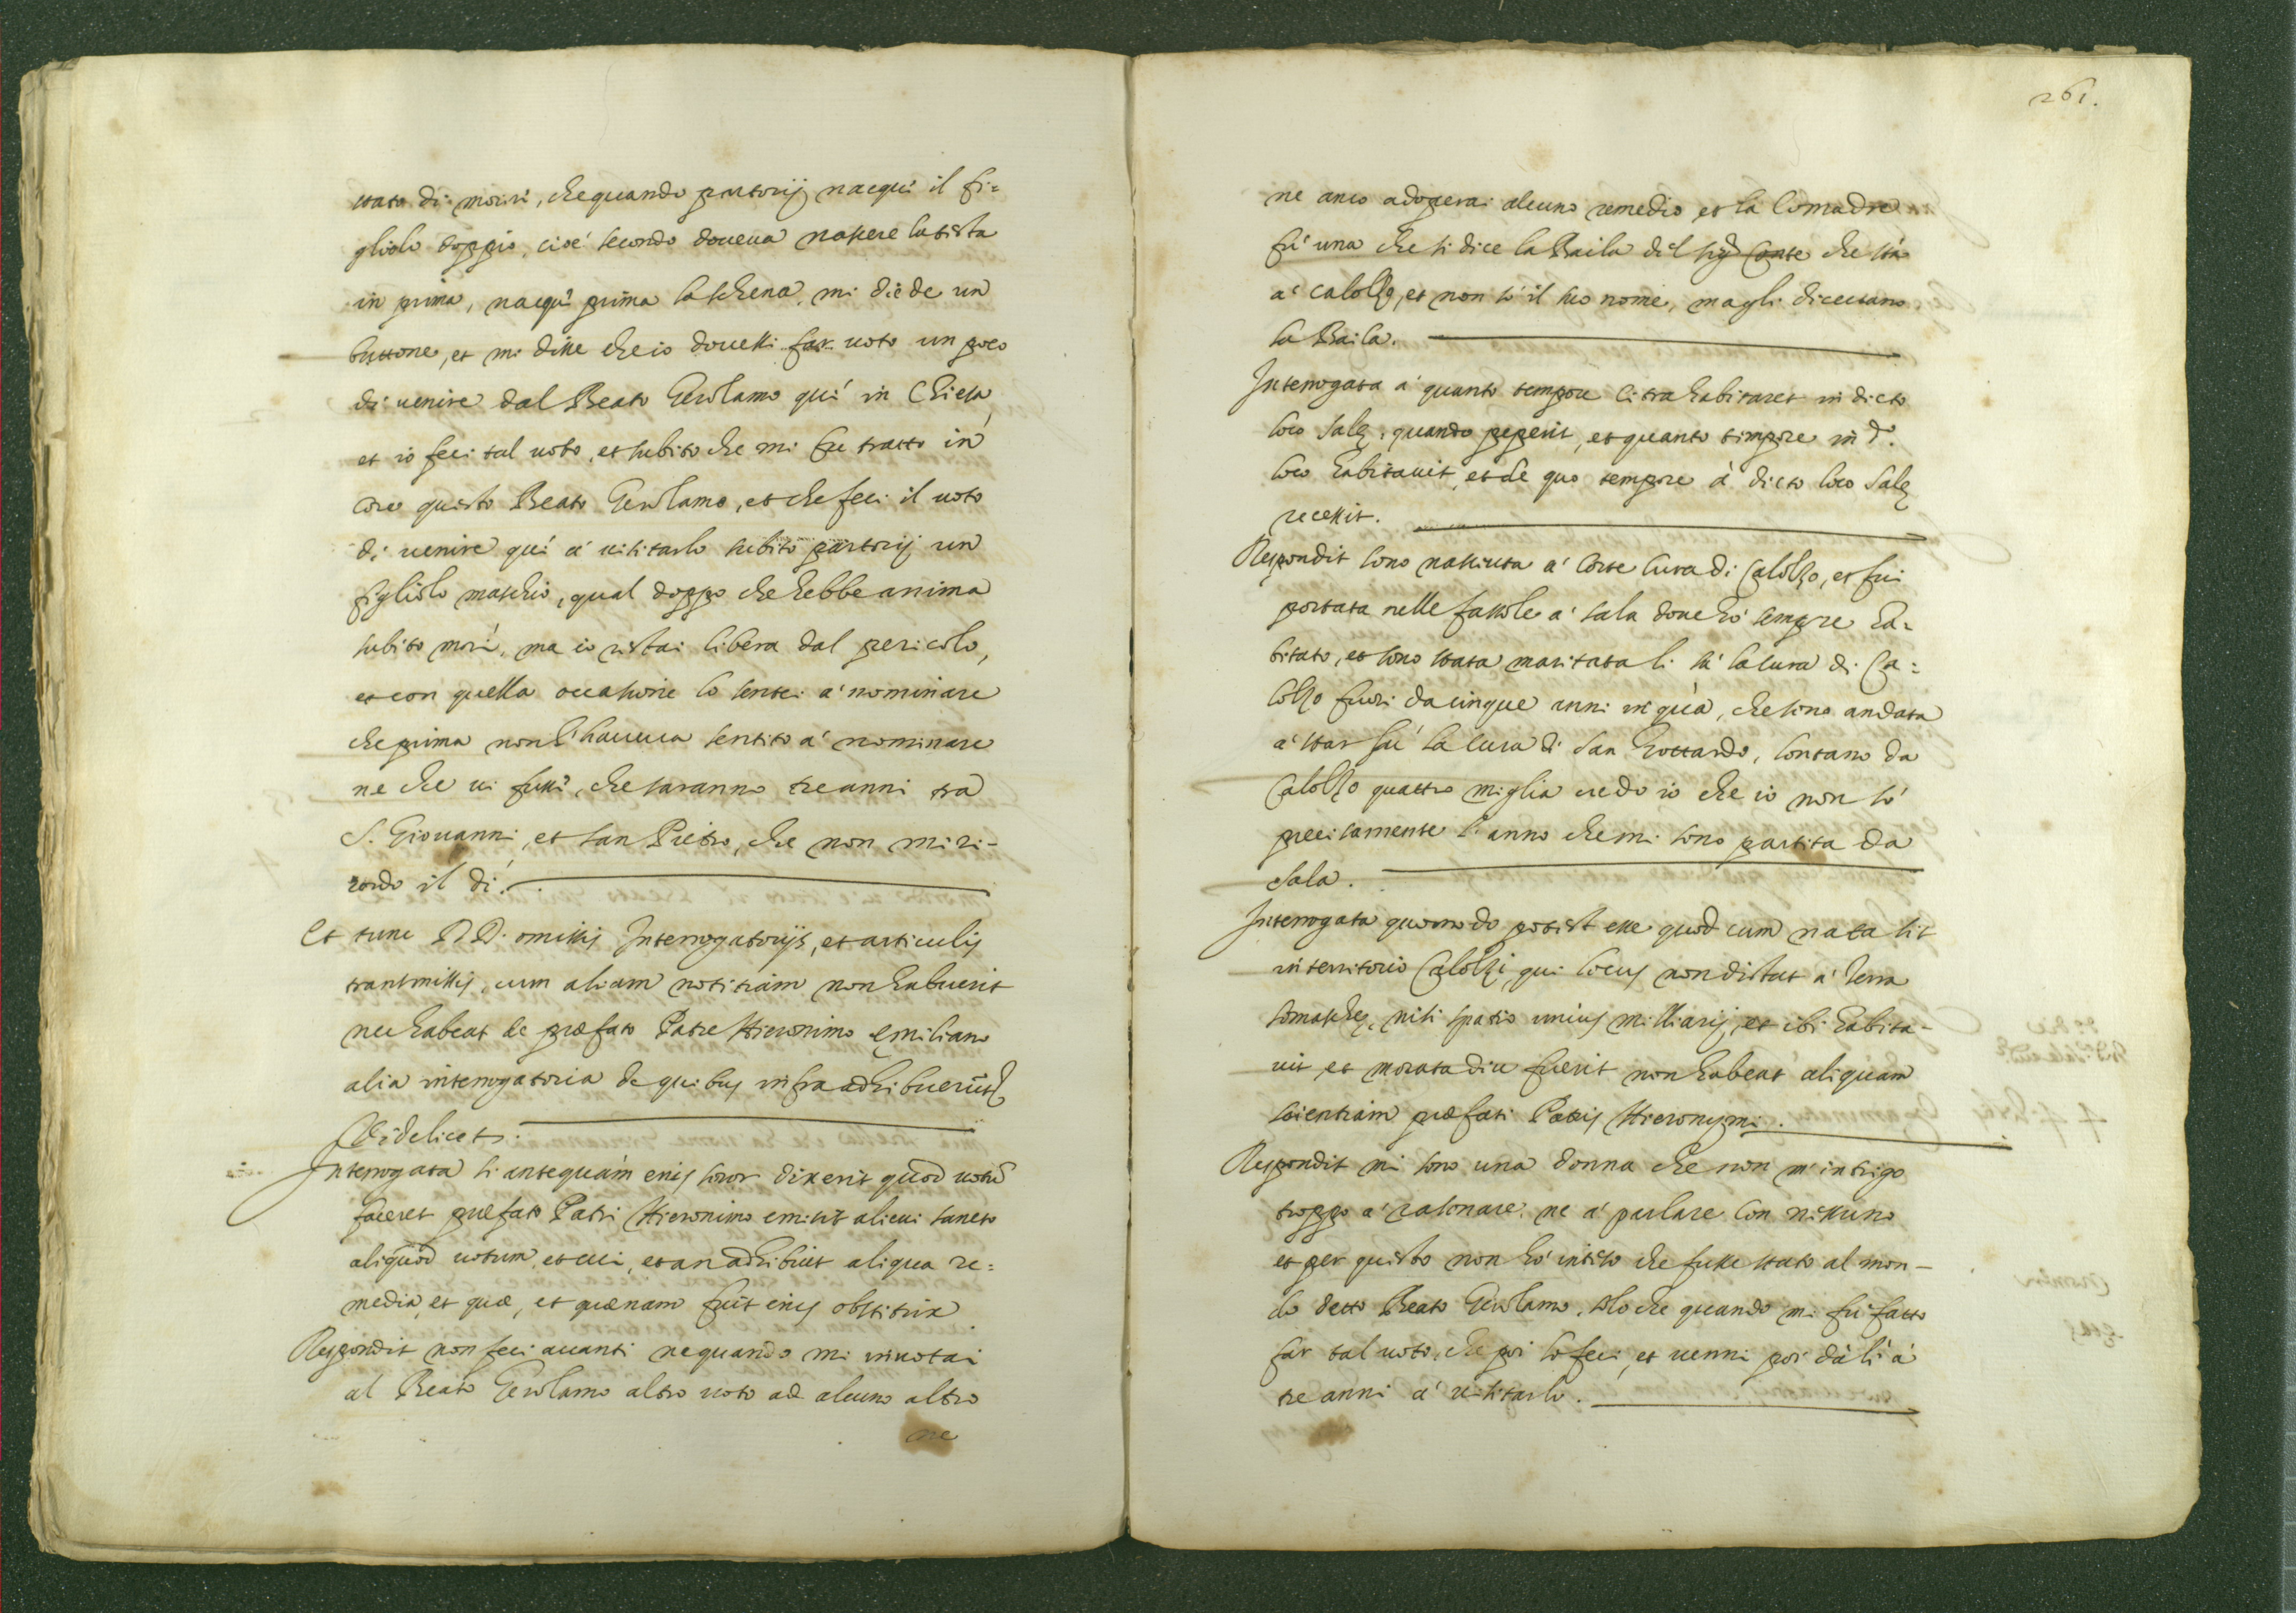 stata di morire, che quando partorij nacqui il fi=
gliolo doppio, cioè secondo doueua nascere la testa
in prima, nacqui prima la schena, mi diede un
bottone, et mi disse che io douessi far uoto un poco
di uenire dal Beato Gerolamo quì in Chiesa,
et io feci tal uoto, et subito che mi fu tratto in
core questo Beato Gerolamo, et che feci il uoto
di uenire quì à uisitarlo subito partorij un
figliolo maschio, qual doppo che hebbe anima
subito morì, ma io restai libera dal pericolo,
et con quella occasione lo sentei à nominare
che prima non l'haueua sentito à nominare
ne che ui fusse, che saranno tre anni tra
S. Giouanni, et san Pietro, che non mi ri-
cordo il dì.
Et tunc DD. omissis Interrogatorijs, et articulis
transmissis, cum aliam notitiam non habuerit
nec habeat de præfato Patre Hieronimo Emiliano
alia interrogatoria de quibus infra adhibuerunt
Videlicet.
Interrogata si antequam eius soror dixerit quod uotū
faceret præfato Patri Hieronimo emisit alicui sancto
aliquod uotum, et cui, et an adhibuit aliqua re=
media, et quæ, et quænam fuit eius obstitrix
Respondit non feci auanti ne quando mi inuotai
al Beato Gerolamo altro uoto ad alcuno altro
ne
261.
ne anco adoperai alcuno remedio et la Comadre
fù una che si dice la Baila del sig.r Conte che stà
à Calolzo, et non sò il suo nome, ma gli diceuano
la Baila.
Interrogata à quanto tempore citra habitaret in dicto
loco Salæ, quando peperit, et quanto timpore in d.o
loco habitauit, et de quo tempore à dicto loco Salæ
recessit.
Respondit sono nassiuta à Corte Cura di Calolzo, et fui
portata nelle fassole à Sala doue hò sempre ha=
bitato, et sono stata maritata li sù la cura di Ca=
lolzo fuori da cinque anni in quà, che sono andata
à star sù la cura di San Gottardo, lontano da
Calolzo quattro miglia credo io che io non sò
precisamente l'anno che mi sono partita da
Sala.
Interrogata quomodo potest esse quod cum nata sit
in territorio Calolzi, qui locus non distat à Terra
Somaschæ, nisi spatio unius milliarij, et ibi habita-
uit et morata diu fuerit non habeat aliquam
scientiam præfati Patris Hieronymi.
Respondit mi sono una donna che non m'intrigo
troppo à rasonare, ne à parlare con nissuno
et per questo non hò inteso che fusse stato al mon-
do detto Beato Gerolamo, solo che quando mi fù fatto
far tal uoto, che poi lo feci, et uenni poi dà lì à
tre anni à uisitarlo.